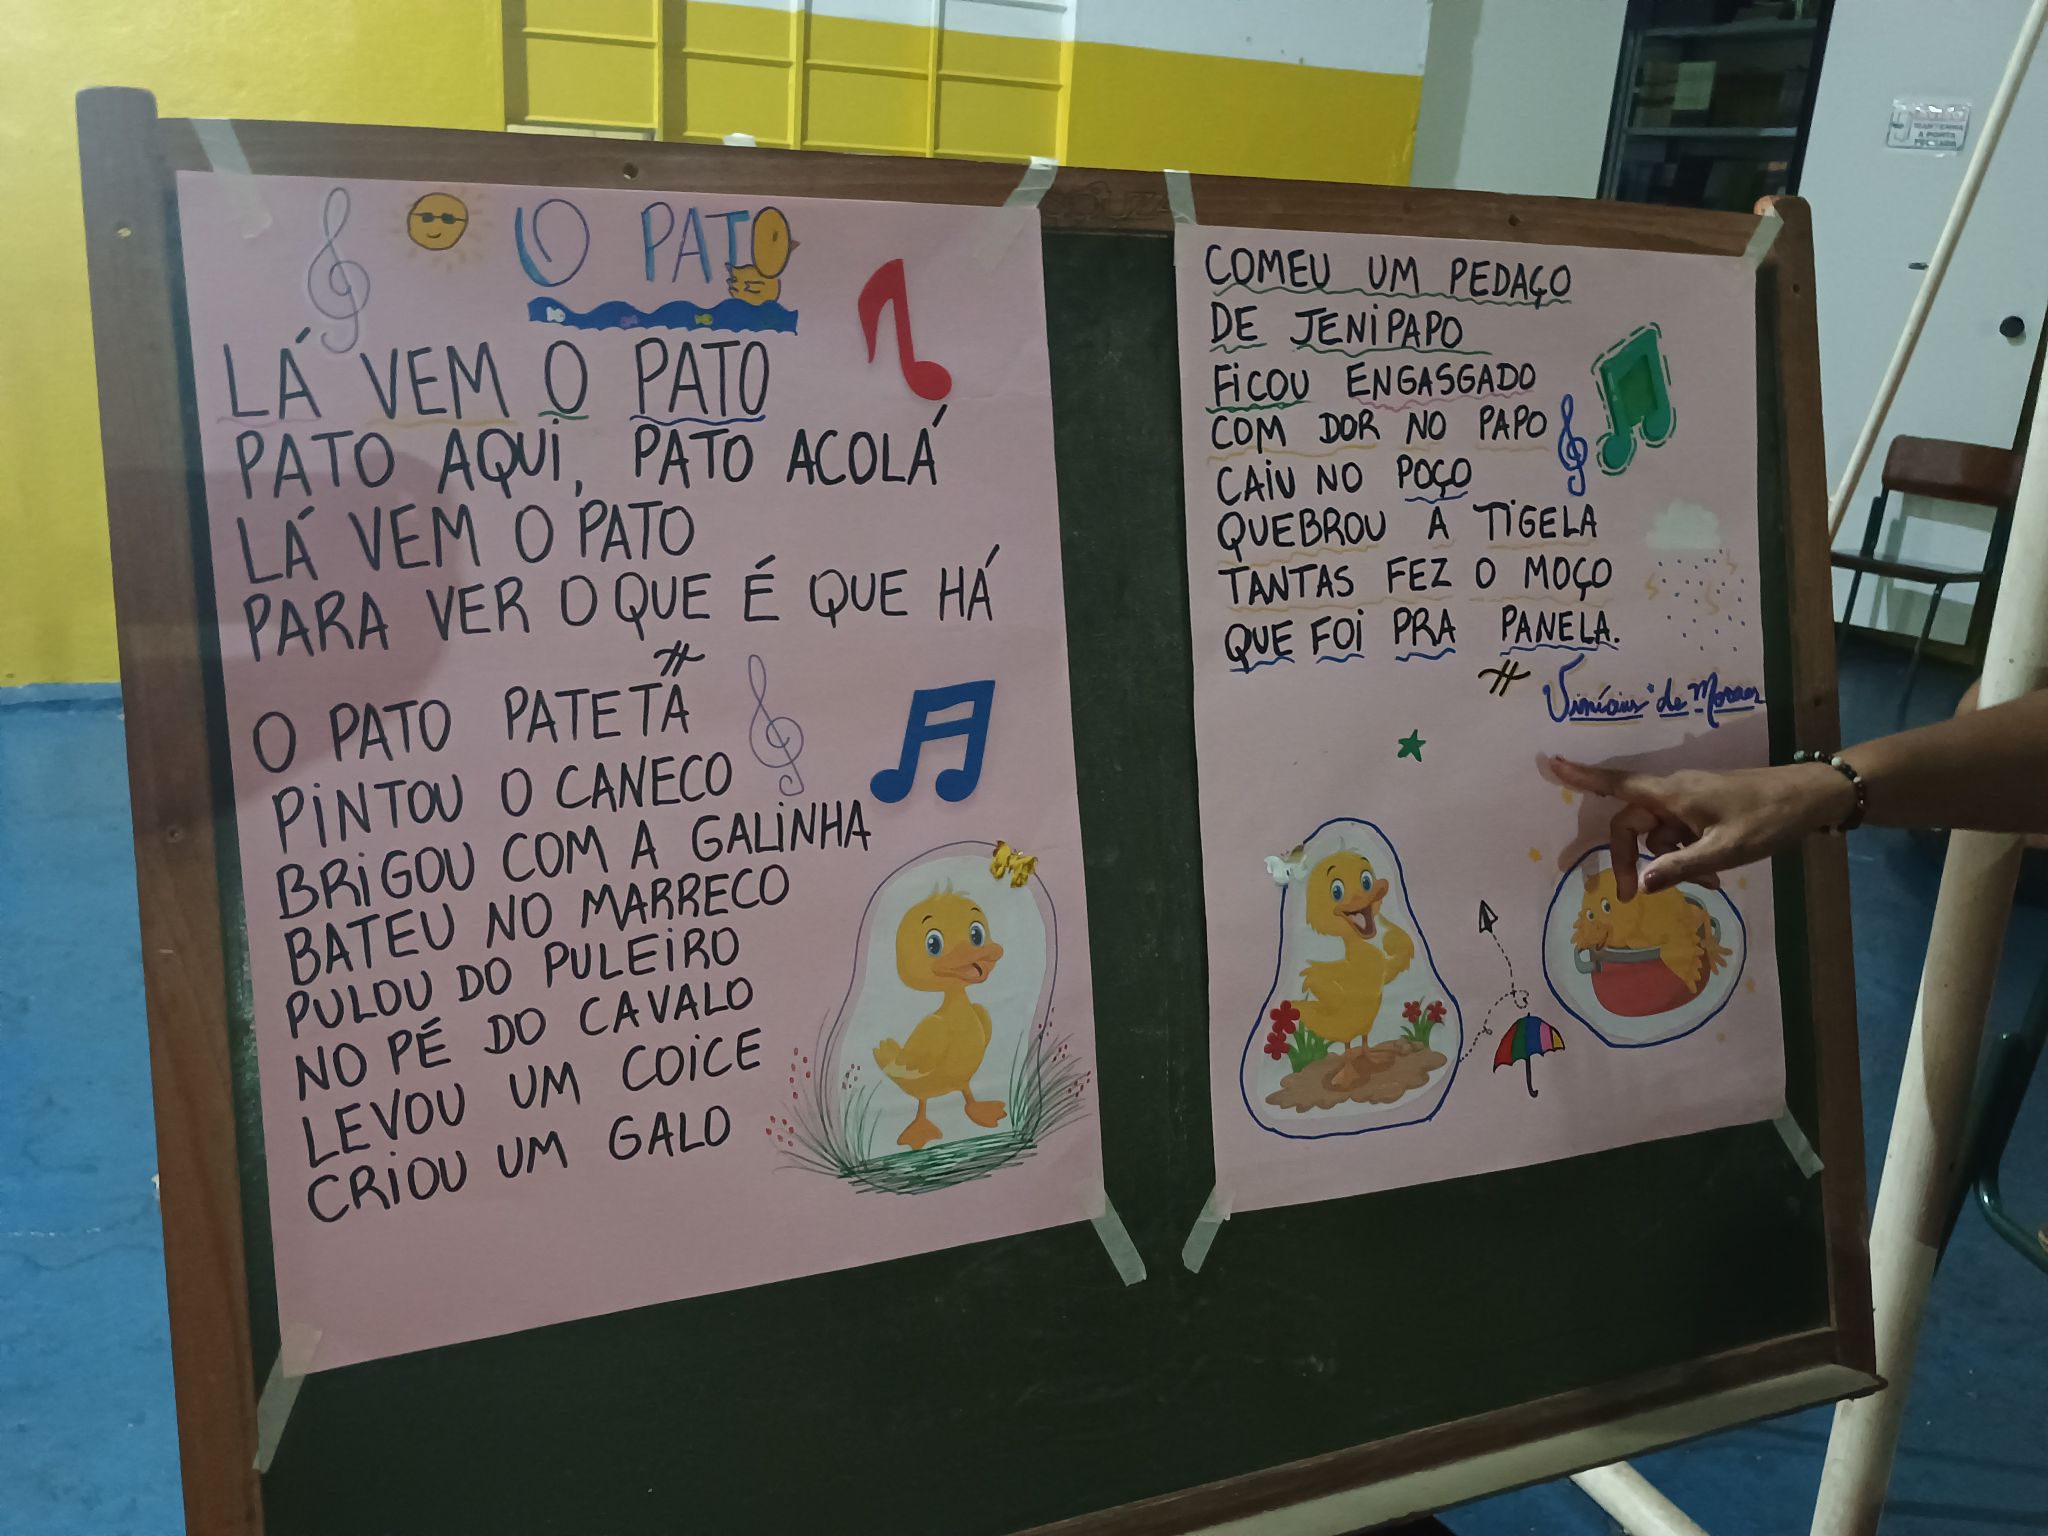 O PATO
LÁ VEM O PATO
PATO AQUI, PATO ACOLÁ
LÁ VEM O PATO
PARA VER O QUE É QUE HÁ
O PATO PATETA
PINTOU O CANECO
BRIGOU COM A GALINHA
BATEU NO MARRECO
PULOU DO PULEIRO
NO PÉ DO CAVALO
LEVOU UM COICE
CRIOU UM GALO
COMEU UM PEDAÇO
DE JENIPAPO
FICOU ENGASGADO
COM DOR NO PAPO
CAIU NO POÇO
QUEBROU A TIGELA
TANTAS FEZ O MOÇO
QUE FOI PRA PANELA.
Vinícius de Moraes
MANTENHA
A PORTA